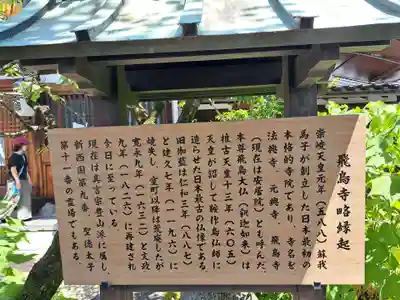 飛鳥寺略縁起
崇峻天皇元年（五八八）蘇我
馬子が創立した日本最初の
本格的寺院であり、寺名を
法興寺　元興寺　飛鳥寺
（現在は安居院）とも呼んだ。
本尊飛鳥大仏（釈迦如来）は
推古天皇十三年（六〇五）
天皇が詔して鞍作鳥仏師に
造らせた日本最古の仏像である。
旧伽藍は仁和三年（八八七）
と建久七年（一一九六）に
焼失し、室町以降は荒廃したが
寛永九年（一六三二）と文政
九年（一八二六）に再建され
今日に至っている。
現在は真言宗豊山派に属し、
新西国第九番、聖徳太子
第十一番の霊場でもある。